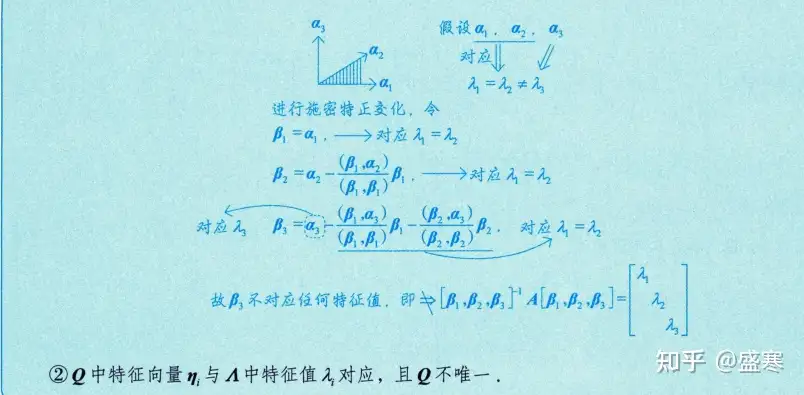 α₃
α₂
α₁
假设 α₁ , α₂ , α₃
对应
λ₁ = λ₂ ≠ λ₃
进行施密特正交化, 令
β₁ = α₁ , → 对应 λ₁ = λ₂
β₂ = α₂ - (β₁,α₂)/(β₁,β₁) β₁ , → 对应 λ₁ = λ₂
对应 λ₃ β₃ = α₃ - (β₁,α₃)/(β₁,β₁) β₁ - (β₂,α₃)/(β₂,β₂) β₂ , 对应 λ₁ = λ₂
故 β₃ 不对应任何特征值, 即 ⇏ [β₁,β₂,β₃]⁻¹ A [β₁,β₂,β₃] = [λ₁ λ₂ λ₃]
② Q 中特征向量 ηᵢ 与 Λ 中特征值 λᵢ 对应, 且 Q 不唯一 .
知乎 @盛寒